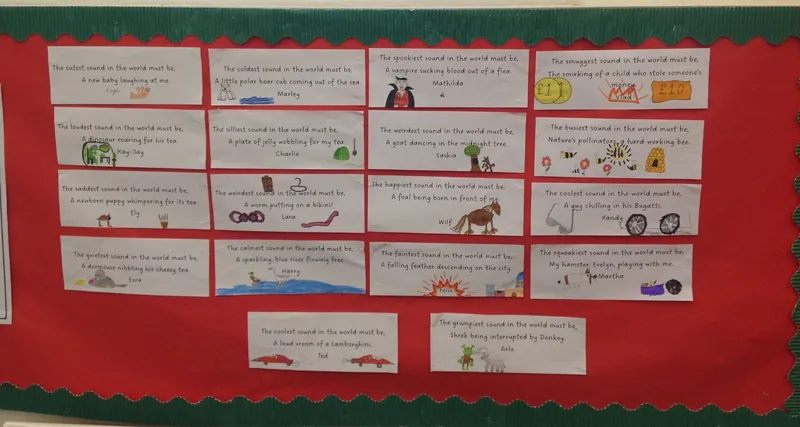 The cutest sound in the world must be,
A new baby laughing at me.
The coldest sound in the world must be,
A little polar bear cub coming out of the sea.
Marley
The spookiest sound in the world must be,
A vampire sucking blood out of a flea.
Mathilda
The smuggest sound in the world must be,
The smirking of a child who stole someone's
money.
Vlad
£1
£10
The loudest sound in the world must be,
A dinosaur roaring for his tea.
Kay-Jay
The silliest sound in the world must be,
A plate of jelly wobbling for my tea.
Charlie
The weirdest sound in the world must be,
A goat dancing in the midnight tree.
Saskia
The busiest sound in the world must be,
Nature's pollinator, a hard working bee.
The saddest sound in the world must be,
A newborn puppy whimpering for its tea.
Ely
The weirdest sound in the world must be,
A worm putting on a bikini!
Lara
The happiest sound in the world must be,
A foal being born in front of me.
Wilf
The coolest sound in the world must be,
A guy chilling in his Bugatti.
Xandy
The quietest sound in the world must be,
A dormouse nibbling his cheesy tea.
Ezra
The calmest sound in the world must be,
A sparkling, blue river flowing free.
Harry
The faintest sound in the world must be,
A falling feather descending on the city.
Felix
The squeakiest sound in the world must be,
My hamster, Evelyn, playing with me.
Martha
The coolest sound in the world must be,
A loud vroom of a Lamborghini.
Ted
The grumpiest sound in the world must be,
Shrek being interrupted by Donkey.
Arlo